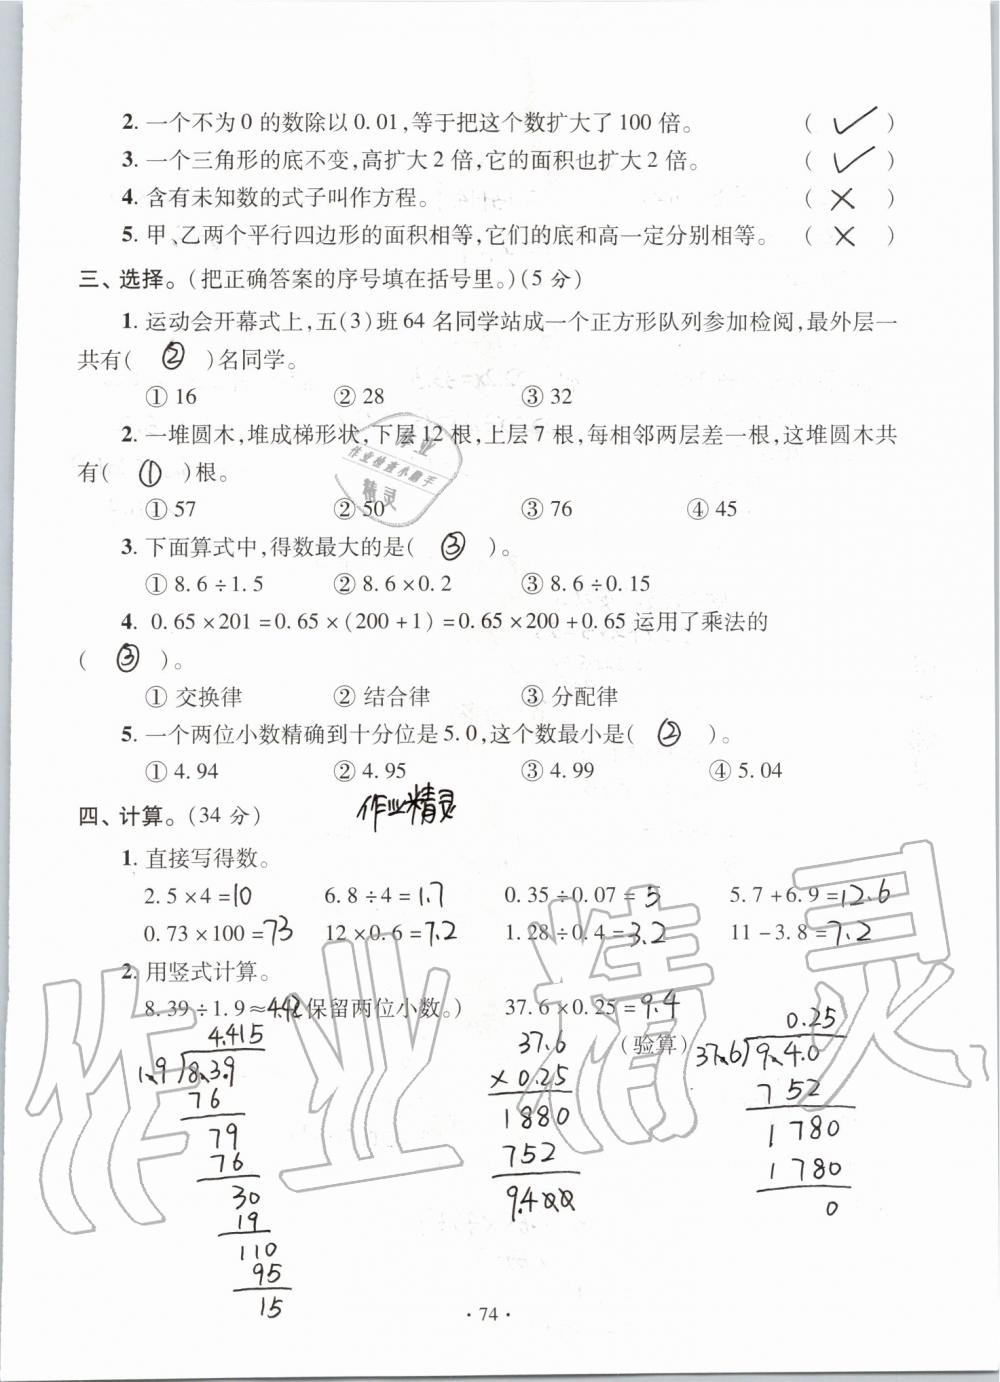 2. 一个不为0的数除以0.01,等于把这个数扩大了100倍。 ( ✓ )
3. 一个三角形的底不变,高扩大2倍,它的面积也扩大2倍。 ( ✓ )
4. 含有未知数的式子叫作方程。 ( × )
5. 甲、乙两个平行四边形的面积相等,它们的底和高一定分别相等。 ( × )
三、选择。(把正确答案的序号填在括号里。)(5分)
1. 运动会开幕式上,五(3)班64名同学站成一个正方形队列参加检阅,最外层一
共有( ② )名同学。
① 16 ② 28 ③ 32
2. 一堆圆木,堆成梯形状,下层12根,上层7根,每相邻两层差一根,这堆圆木共
有( ① )根。
① 57 ② 50 ③ 76 ④ 45
3. 下面算式中,得数最大的是( ③ )。
① 8.6÷1.5 ② 8.6×0.2 ③ 8.6÷0.15
4. 0.65×201=0.65×(200+1)=0.65×200+0.65运用了乘法的
( ③ )。
① 交换律 ② 结合律 ③ 分配律
5. 一个两位小数精确到十分位是5.0,这个数最小是( ② )。
① 4.94 ② 4.95 ③ 4.99 ④ 5.04
四、计算。(34分) 作业精灵
1. 直接写得数。
2.5×4=10 6.8÷4=1.7 0.35÷0.07=5 5.7+6.9=12.6
0.73×100=73 12×0.6=7.2 1.28÷0.4=3.2 11-3.8=7.2
2. 用竖式计算。
8.39÷1.9≈4.42(保留两位小数。) 37.6×0.25=9.4
(验算)
4.415
1.9 8.3.9
76
79
76
30
19
110
95
15
37.6
× 0.25
1880
752
9.400
0.25
37.6 9.4.0
752
1780
1780
0
· 74 ·
作业
作业检查小助手
精灵
作业精灵